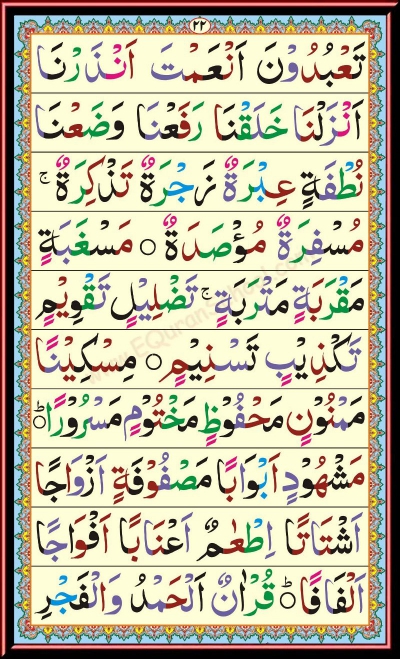 ٢٢
تَعْبُدُوْنَ اَنْعَمْتَ اَنْذَرْنَا
اَنْزَلْنَا خَلَقْنَا رَفَعْنَا وَضَعْنَا
نُطْفَةٍ عِبْرَةٌ زَجْرَةٌ تَذْكِرَةٌ ۚ
مُسْفِرَةٌ مُؤْصَدَةٌ ○ مَسْغَبَةٍ
مَقْرَبَةٍ مَتْرَبَةٍ ۚ تَضْلِيْلٍ تَقْوِيْمٍ
تَكْذِيْبٍ تَسْنِيْمٍ ○ مِسْكِيْنًا
مَمْنُوْنٍ مَحْفُوْظٍ مَخْتُوْمٍ مَسْرُوْرًا ○ؕ
مَشْهُوْدٍ اَبْوَابًا مَصْفُوْفَةٍ اَزْوَاجًا
اَشْتَاتًا اِطْعٰمٌ اَعْنَابًا اَفْوَاجًا
اَلْفَافًا ○ؕ قُرْاٰنٌ اَلْحَمْدُ وَالْفَجْرِ